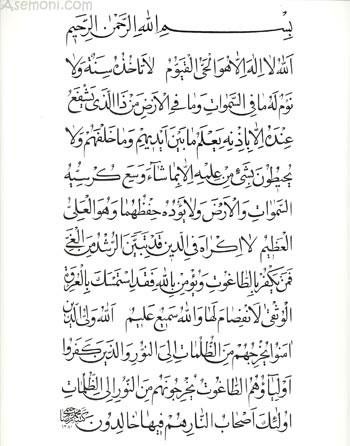 Asemoni.com
بِسْمِ اللهِ الرَّحْمٰنِ الرَّحِيمِ
اَللهُ لا اِلٰهَ اِلاّ هُوَ الْحَىُّ الْقَيّوُمُ لا تَاْخُذُهُ سِنَةٌ وَلا
نَوْمٌ لَهُ ما فِى السَّمٰواتِ وَ ما فِى الْاَرْضِ مَنْ ذَا الَّذى يَشْفَعُ
عِنْدَهُ اِلاّ بِاِذْنِهِ يَعْلَمُ ما بَيْنَ اَيْديهِمْ وَ ما خَلْفَهُمْ وَلا
يُحيطُونَ بِشَىْءٍ مِنْ عِلْمِهِ اِلاّ بِما شاءَ وَسِعَ كُرْسِيُّهُ
السَّمٰواتِ وَالْاَرْضَ وَلا يَؤُدُهُ حِفْظُهُما وَهُوَ الْعَلِىُّ
الْعَظيمُ لا اِكْراهَ فِى الدّينِ قَدْ تَبَيَّنَ الرُّشْدُ مِنَ الْغَىِّ
فَمَنْ يَكْفُرْ بِالطّاغُوتِ وَيُؤْمِنْ بِاللهِ فَقَدِ اسْتَمْسَكَ بِالْعُرْوَةِ
الْوُثْقٰى لاَ انْفِصامَ لَها وَاللهُ سَميعٌ عَليمٌ اَللهُ وَلِىُّ الَّذينَ
امَنُوا يُخْرِجُهُمْ مِنَ الظُّلُماتِ اِلَى النُّورِ وَالَّذينَ كَفَرُوا
اَوْلِياؤُهُمُ الطّاغُوتُ يُخْرِجُونَهُمْ مِنَ النُّورِ اِلَى الظُّلُماتِ
اُولٰئِكَ اَصْحابُ النّارِ هُمْ فيها خالِدُونَ